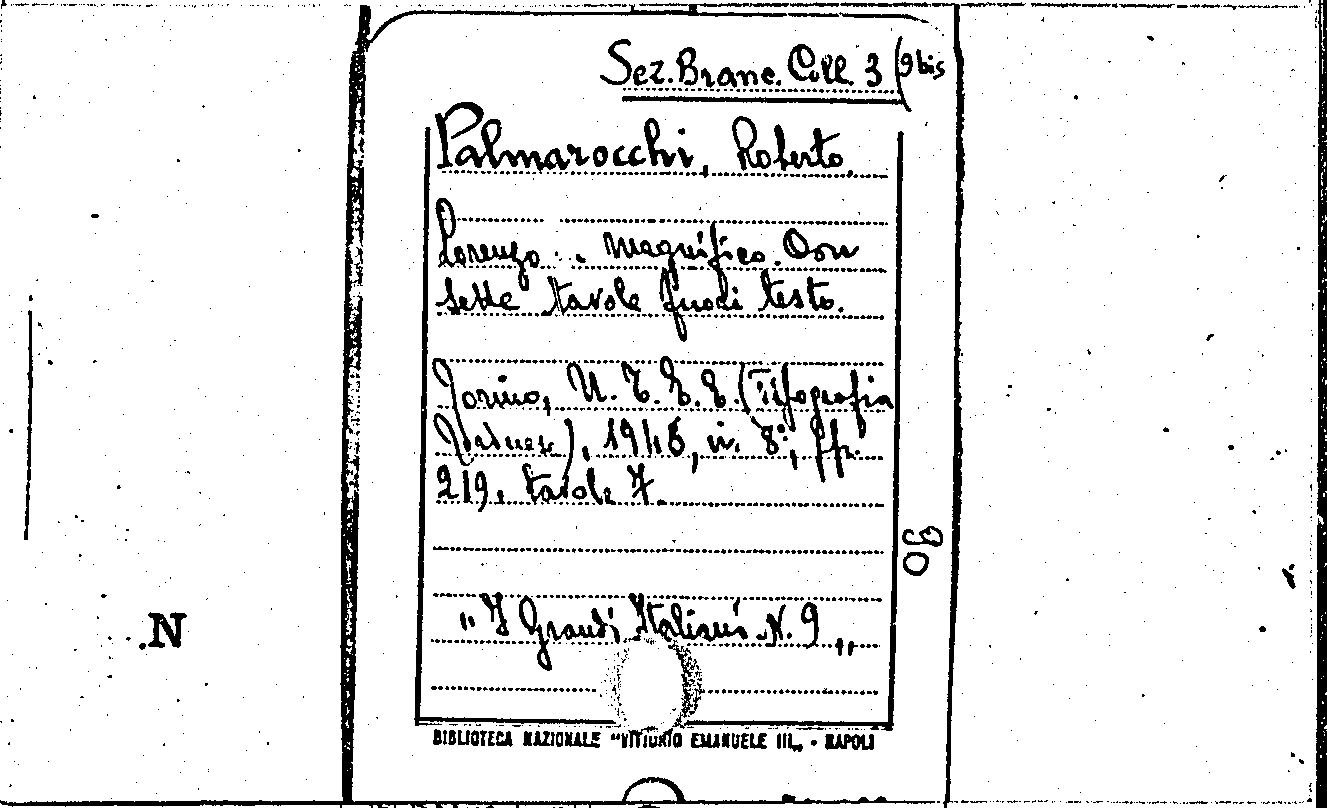 Sez. Branc. Coll. 3 (9 bis
Palmarocchi, Roberto.
Lorenzo . Magnifico. Con
sette tavole fuori testo.
Torino, U. T. E. T. (Tipografia
), 1946, in 8°, pp.
219. tavole 7.
90
"I Grandi Italiani N. 9"
.N
BIBLIOTECA NAZIONALE "VITTORIO EMANUELE III" - NAPOLI